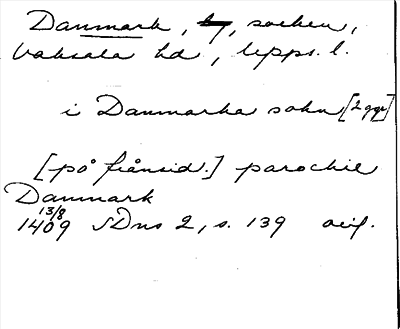 Danmark, by, socken,
Vaksala hd, Upps. l.
i Danmarka sokn [2 ggr]
[på frånsid.] parochie
Danmark
13/8
1409 SDns 2, s. 139 avsf.